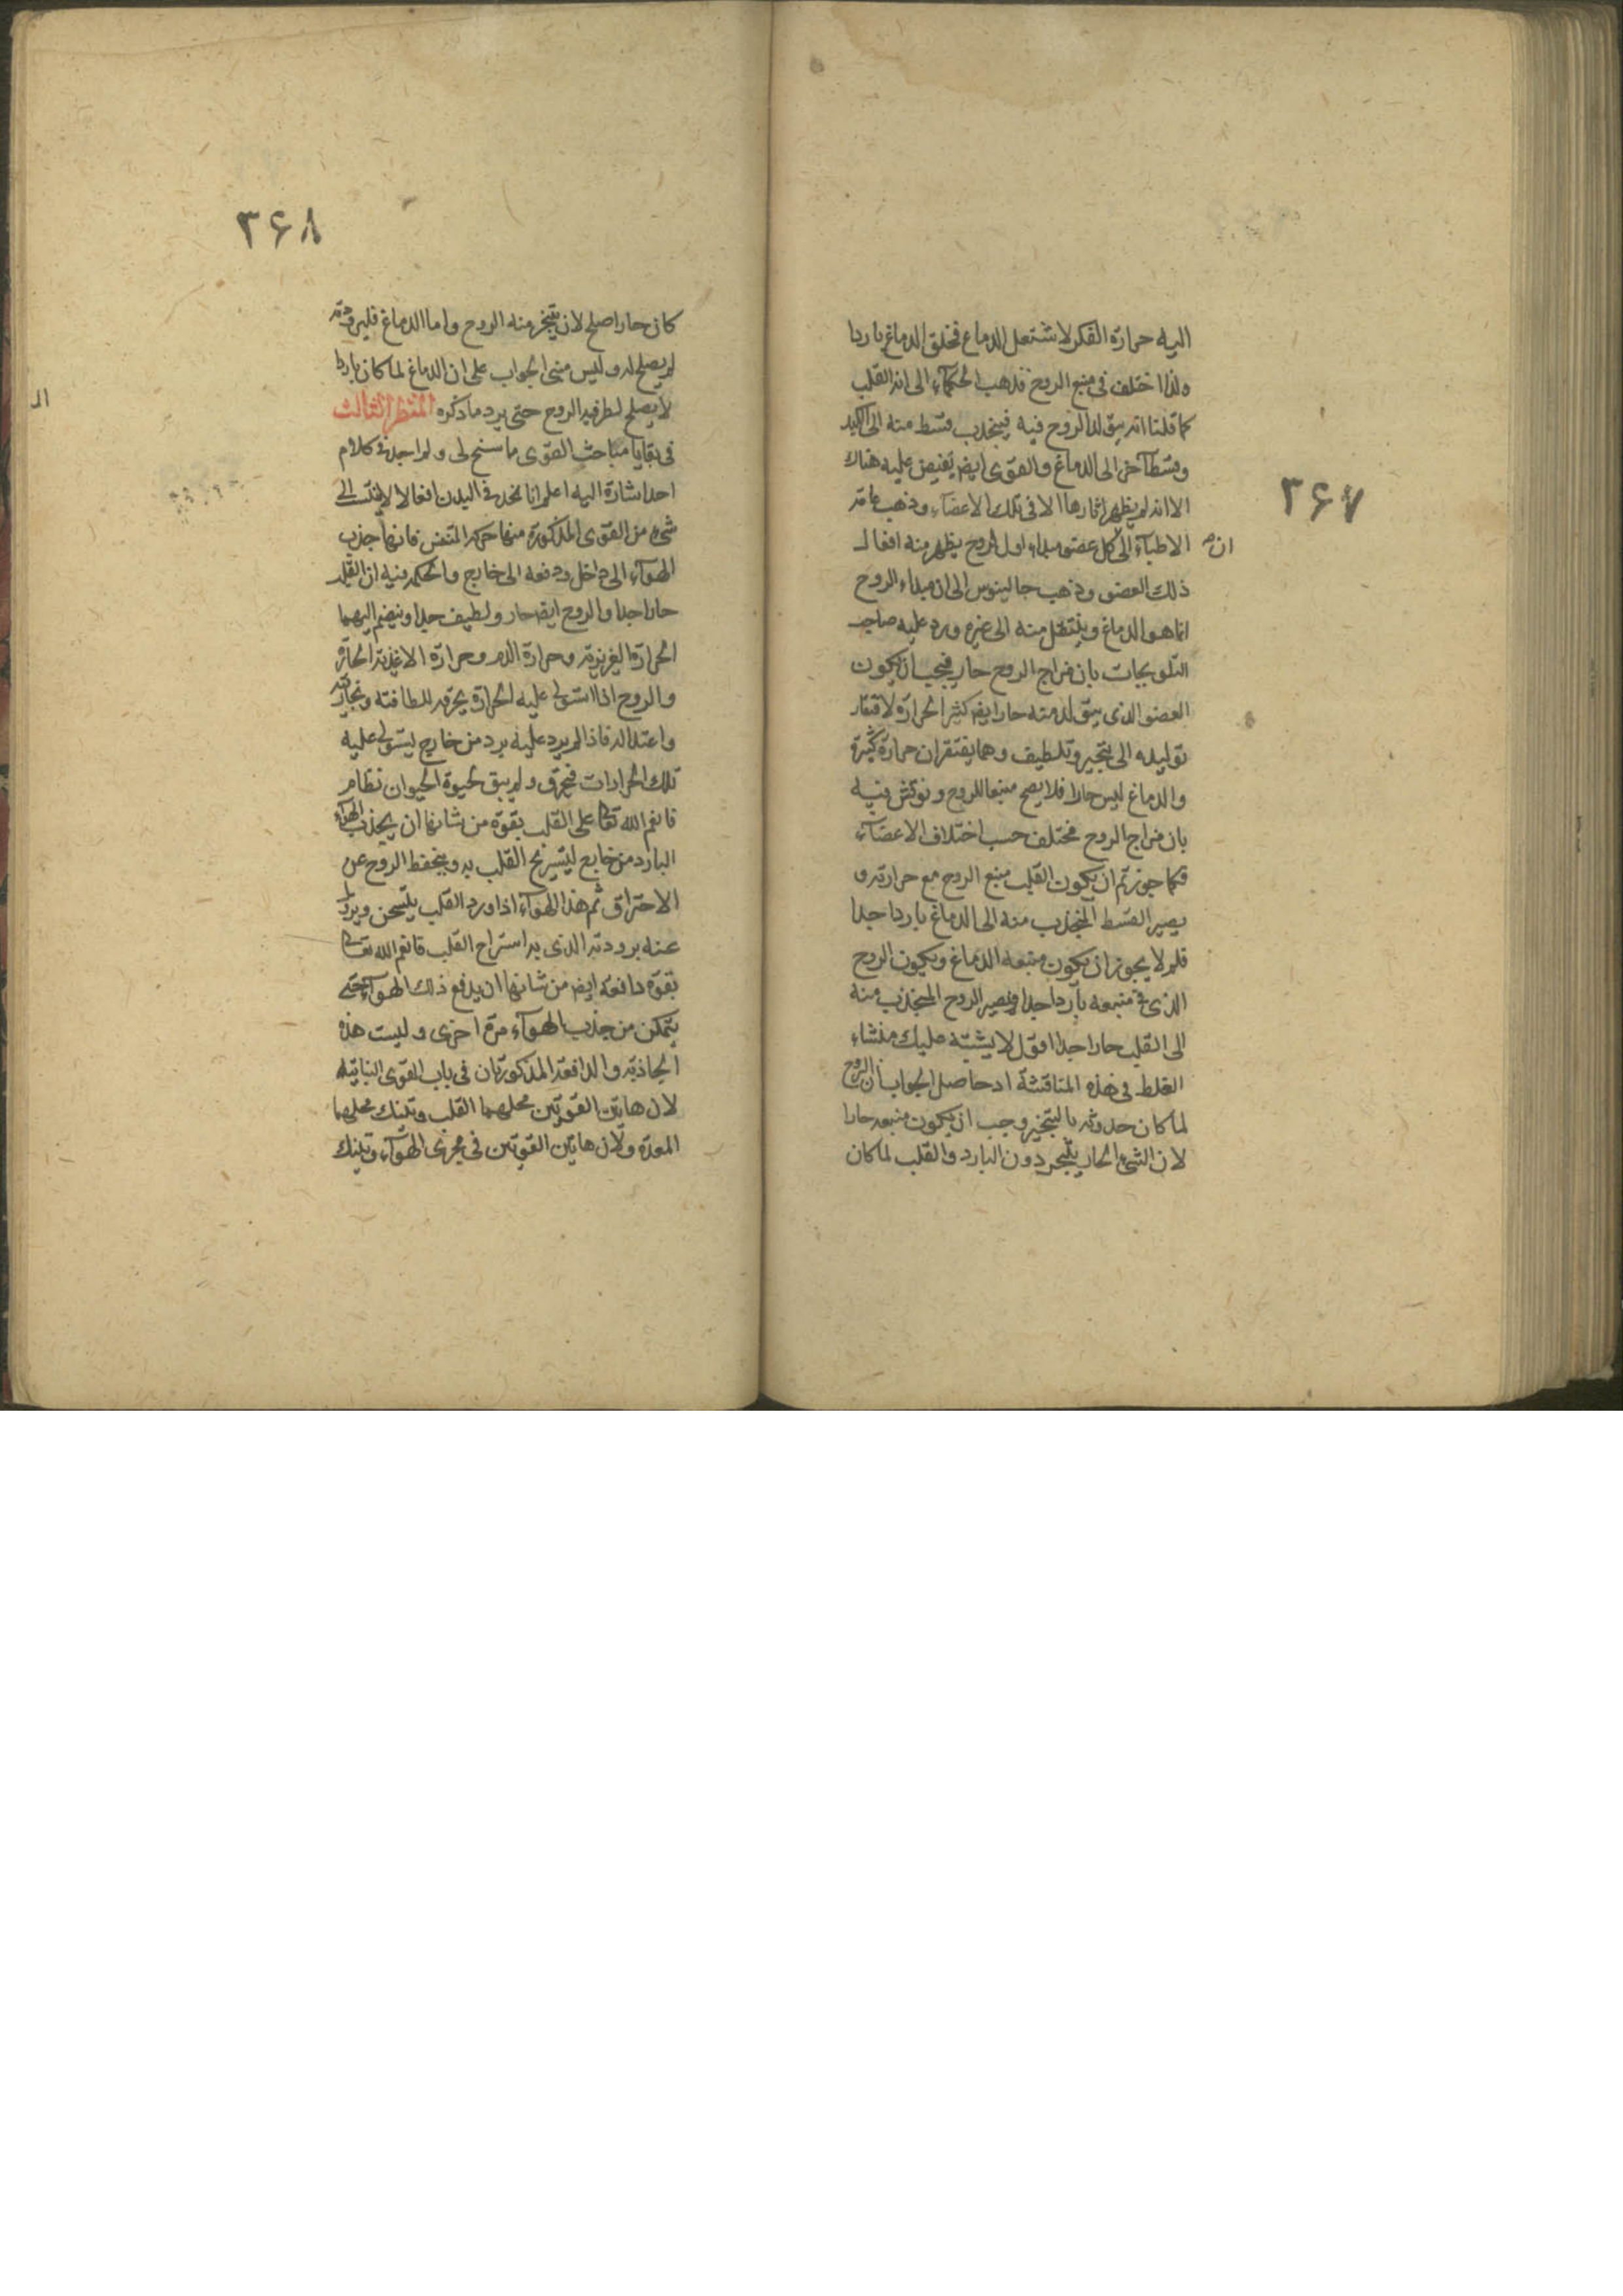 ۳۶۷
اليه حرارة الفكر لاشتعل الدماغ فخلق الدماغ باردا
ولذا اختلف فى منبع الروح فذهب الحكمآء الى انه القلب
كما قلنا انه يتولد الروح فيه فينجذب قسط منه الى الكبد
وقسط آخر الى الدماغ والقوى ايض يفيض عليه هناك
الا انه لم يظهر اثارها الا فى تلك الاعضآء وذهب عامة
الاطبآء الى كل عضو مبداء اول لروح يظهر منه افعال
ان
ذلك العضو وذهب جالينوس الى ان مبداء الروح
انما هو الدماغ وينتقل منه الى غيره ورد عليه صاحب
التلويحات بان مزاج الروح حار فيجب ان يكون
العضو الذى يتولد منه حارا ايض كثير الحرارة لافتقار
توليده الى تبخير وتلطيف وهما يفتقران حرارة كثيرة
والدماغ ليس حارا فلا يصح منبعا للروح ونوقش فيه
بان مزاج الروح مختلف حسب اختلاف الاعضآء
فكما جوزتم ان يكون القلب منبع الروح مع حرارته و
يصير القسط المنجذب منه الى الدماغ باردا جدا
فلم لا يجوز ان يكون منبعه الدماغ ويكون الروح
الذى فى منبعه باردا جدا ويصير الروح المنجذب منه
الى القلب حارا جدا اقول لا يشتبه عليك منشاء
الغلط فى هذه المناقشة اذ حاصل الجواب ان الروح
لما كان حدوثه بالتبخير وجب ان يكون منبعه حارا
لان الشئ الحار يتبخر دون البارد والقلب لما كان
۳۶۸
كان حارا صلح لان يتبخر منه الروح واما الدماغ فلبرودته
لم يصلح له وليس مبنى الجواب على ان الدماغ لما كان باردا
لا يصلح لظرفية الروح حتى يرد ما ذكره المنظر الثالث
فى بقايا مباحث القوى ما سنح لى ولم اجد فى كلام
احد اشارة اليه اعلم انا نجد فى البدن افعالا لا ينتسب الى
شئ من القوى المذكورة منها حركة التنفس فانها جذب
الهوآء الى داخل ودفعه الى خارج والحكمة فيه ان القلب
حار جدا والروح ايض حار ولطيف جدا وينضم اليهما
الحرارة الغريزية وحرارة الدم وحرارة الاغذية الحارة
والروح اذا استولى عليه الحرارة يحرقه للطافته وبخاريته
واعتداله فاذا لم يرد عليه برد من خارج ليستولى عليه
تلك الحرارات فيحرق ولم يبق لحيوة الحيوان نظام
فانعم الله تعالى على القلب بقوة من شانها ان يجذب الهوآء
البارد من خارج ليستريح القلب به وينحفظ الروح عن
الاحتراق ثم هذا الهوآء اذا ورد القلب يتسخن ويزول
عنه برودته الذى به استراح القلب فانعم الله تعالى
بقوة دافعة ايض من شانها ان يدفع ذلك الهوآء حتى
يتمكن من جذب الهوآء مرة اخرى وليست هذه
الجاذبة والدافعة المذكورتان فى باب القوى النباتية
لان هاتين القوتين محلهما القلب وتينك محلهما
المعدة ولان هاتين القوتين فى مجرى الهوآء وتينك